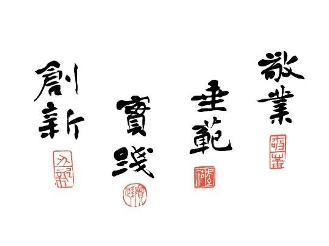 敬業
垂範
實踐
創新